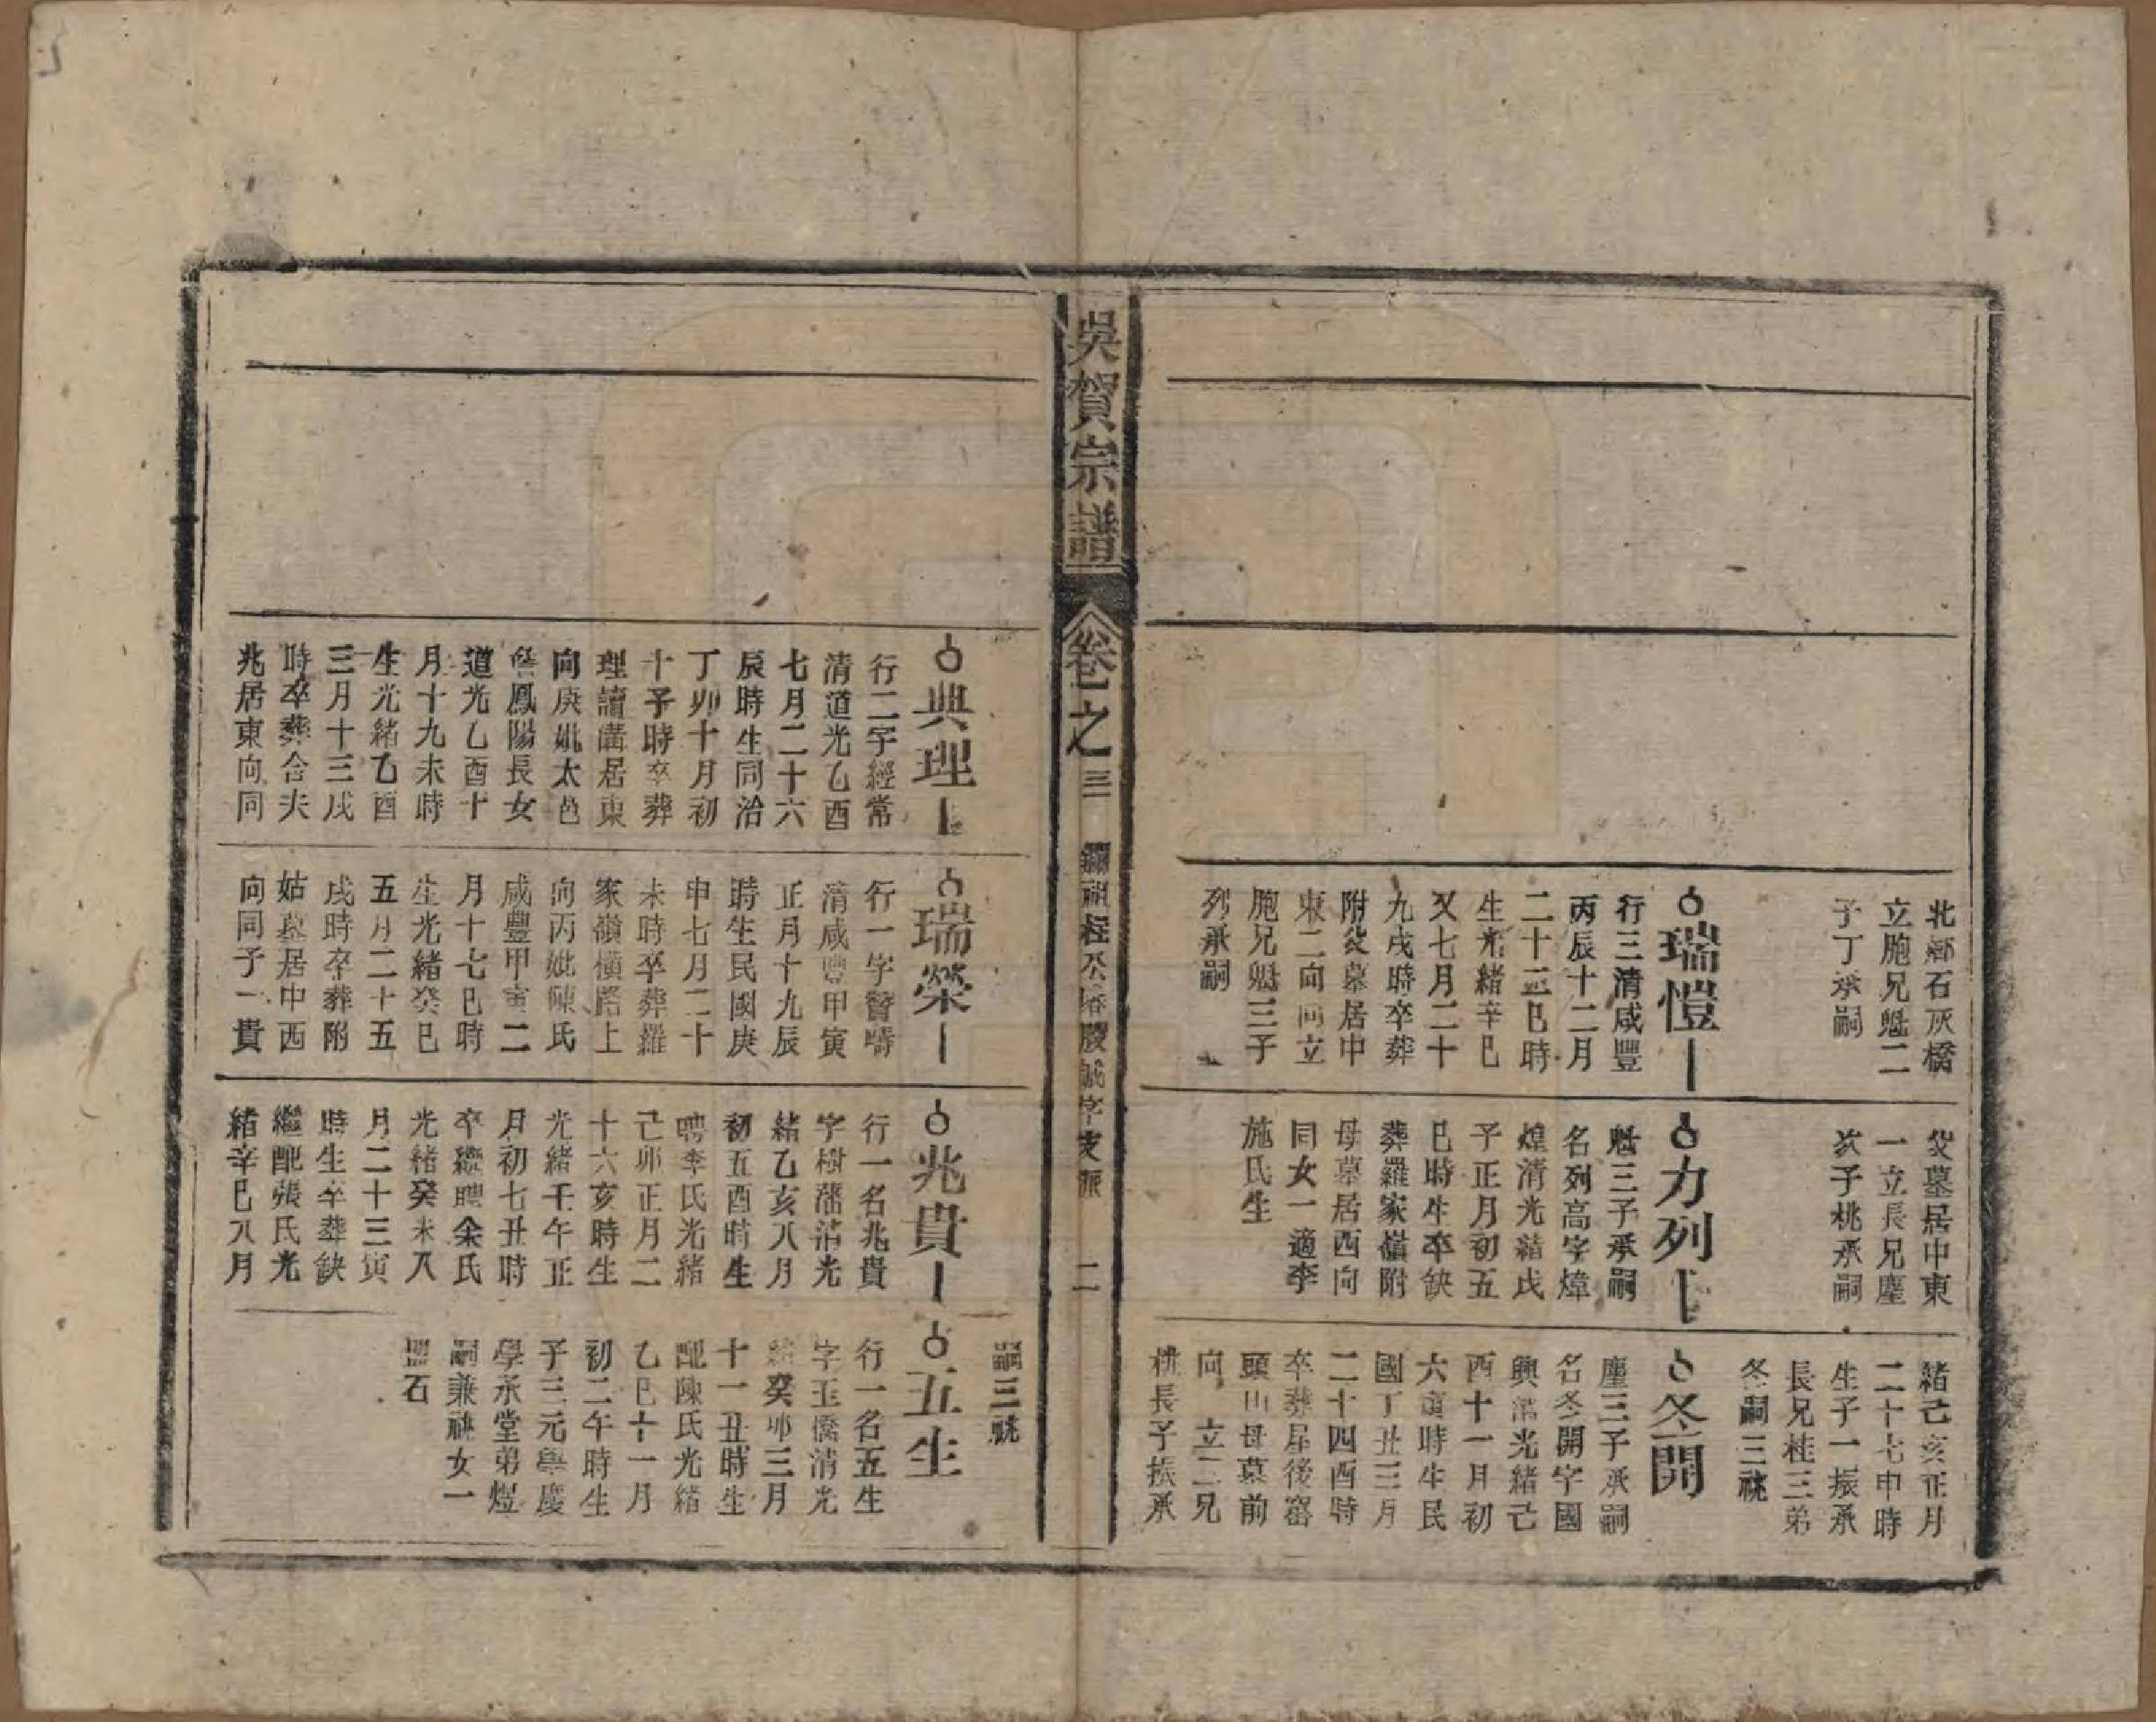 北鄉石灰橋
立胞兄魁二
子丁承嗣
瑞愷
行三清咸豐
丙辰十二月
二十三巳時
生光緒辛巳
又七月二十
九戌時卒葬
附父墓居中
東二向同立
胞兄魁三子
列承嗣
父墓居中東
一立長兄塵
次子桃承嗣
力列
魁三子承嗣
名列高字煒
煌清光緒戊
子正月初五
巳時生卒缺
葬羅家嶺附
母墓居西向
同女一適李
施氏生
緒己亥正月
二十七申時
生子一振承
長兄桂三弟
冬嗣三祧
冬開
塵三子承嗣
名冬開字國
興清光緒己
酉十一月初
六寅時生民
國丁丑三月
二十四酉時
卒葬屋後窰
頭山母墓前
向 立二兄
桃長子振承
吳賀宗譜
卷之三
二
典理
行二字經常
清道光乙酉
七月二十六
辰時生同治
丁卯十月初
十子時卒葬
理讀溝居東
向庚妣太邑
詹鳳陽長女
道光乙酉十
月十九未時
生光緒乙酉
三月十三戌
時卒葬合夫
兆居東向同
瑞榮
行一字賢疇
清咸豐甲寅
正月十九辰
時生民國庚
申七月二十
未時卒葬羅
家嶺橫路上
向丙妣陳氏
咸豐甲寅二
月十七巳時
生光緒癸巳
五月二十五
戌時卒葬附
姑墓居中西
向同子一貴
兆貴
行一名兆貴
字樹藩清光
緒乙亥八月
初五酉時生
聘李氏光緒
己卯正月二
十六亥時生
光緒壬午正
月初七丑時
卒繼聘余氏
光緒癸未八
月二十三寅
時生卒葬缺
繼配張氏光
緒辛巳八月
嗣三祧
五生
行一名五生
字玉橋清光
緒癸卯三月
十一丑時生
配陳氏光緒
乙巳十一月
初二午時生
子三元學慶
學承堂弟煜
嗣兼祧女一
盟石